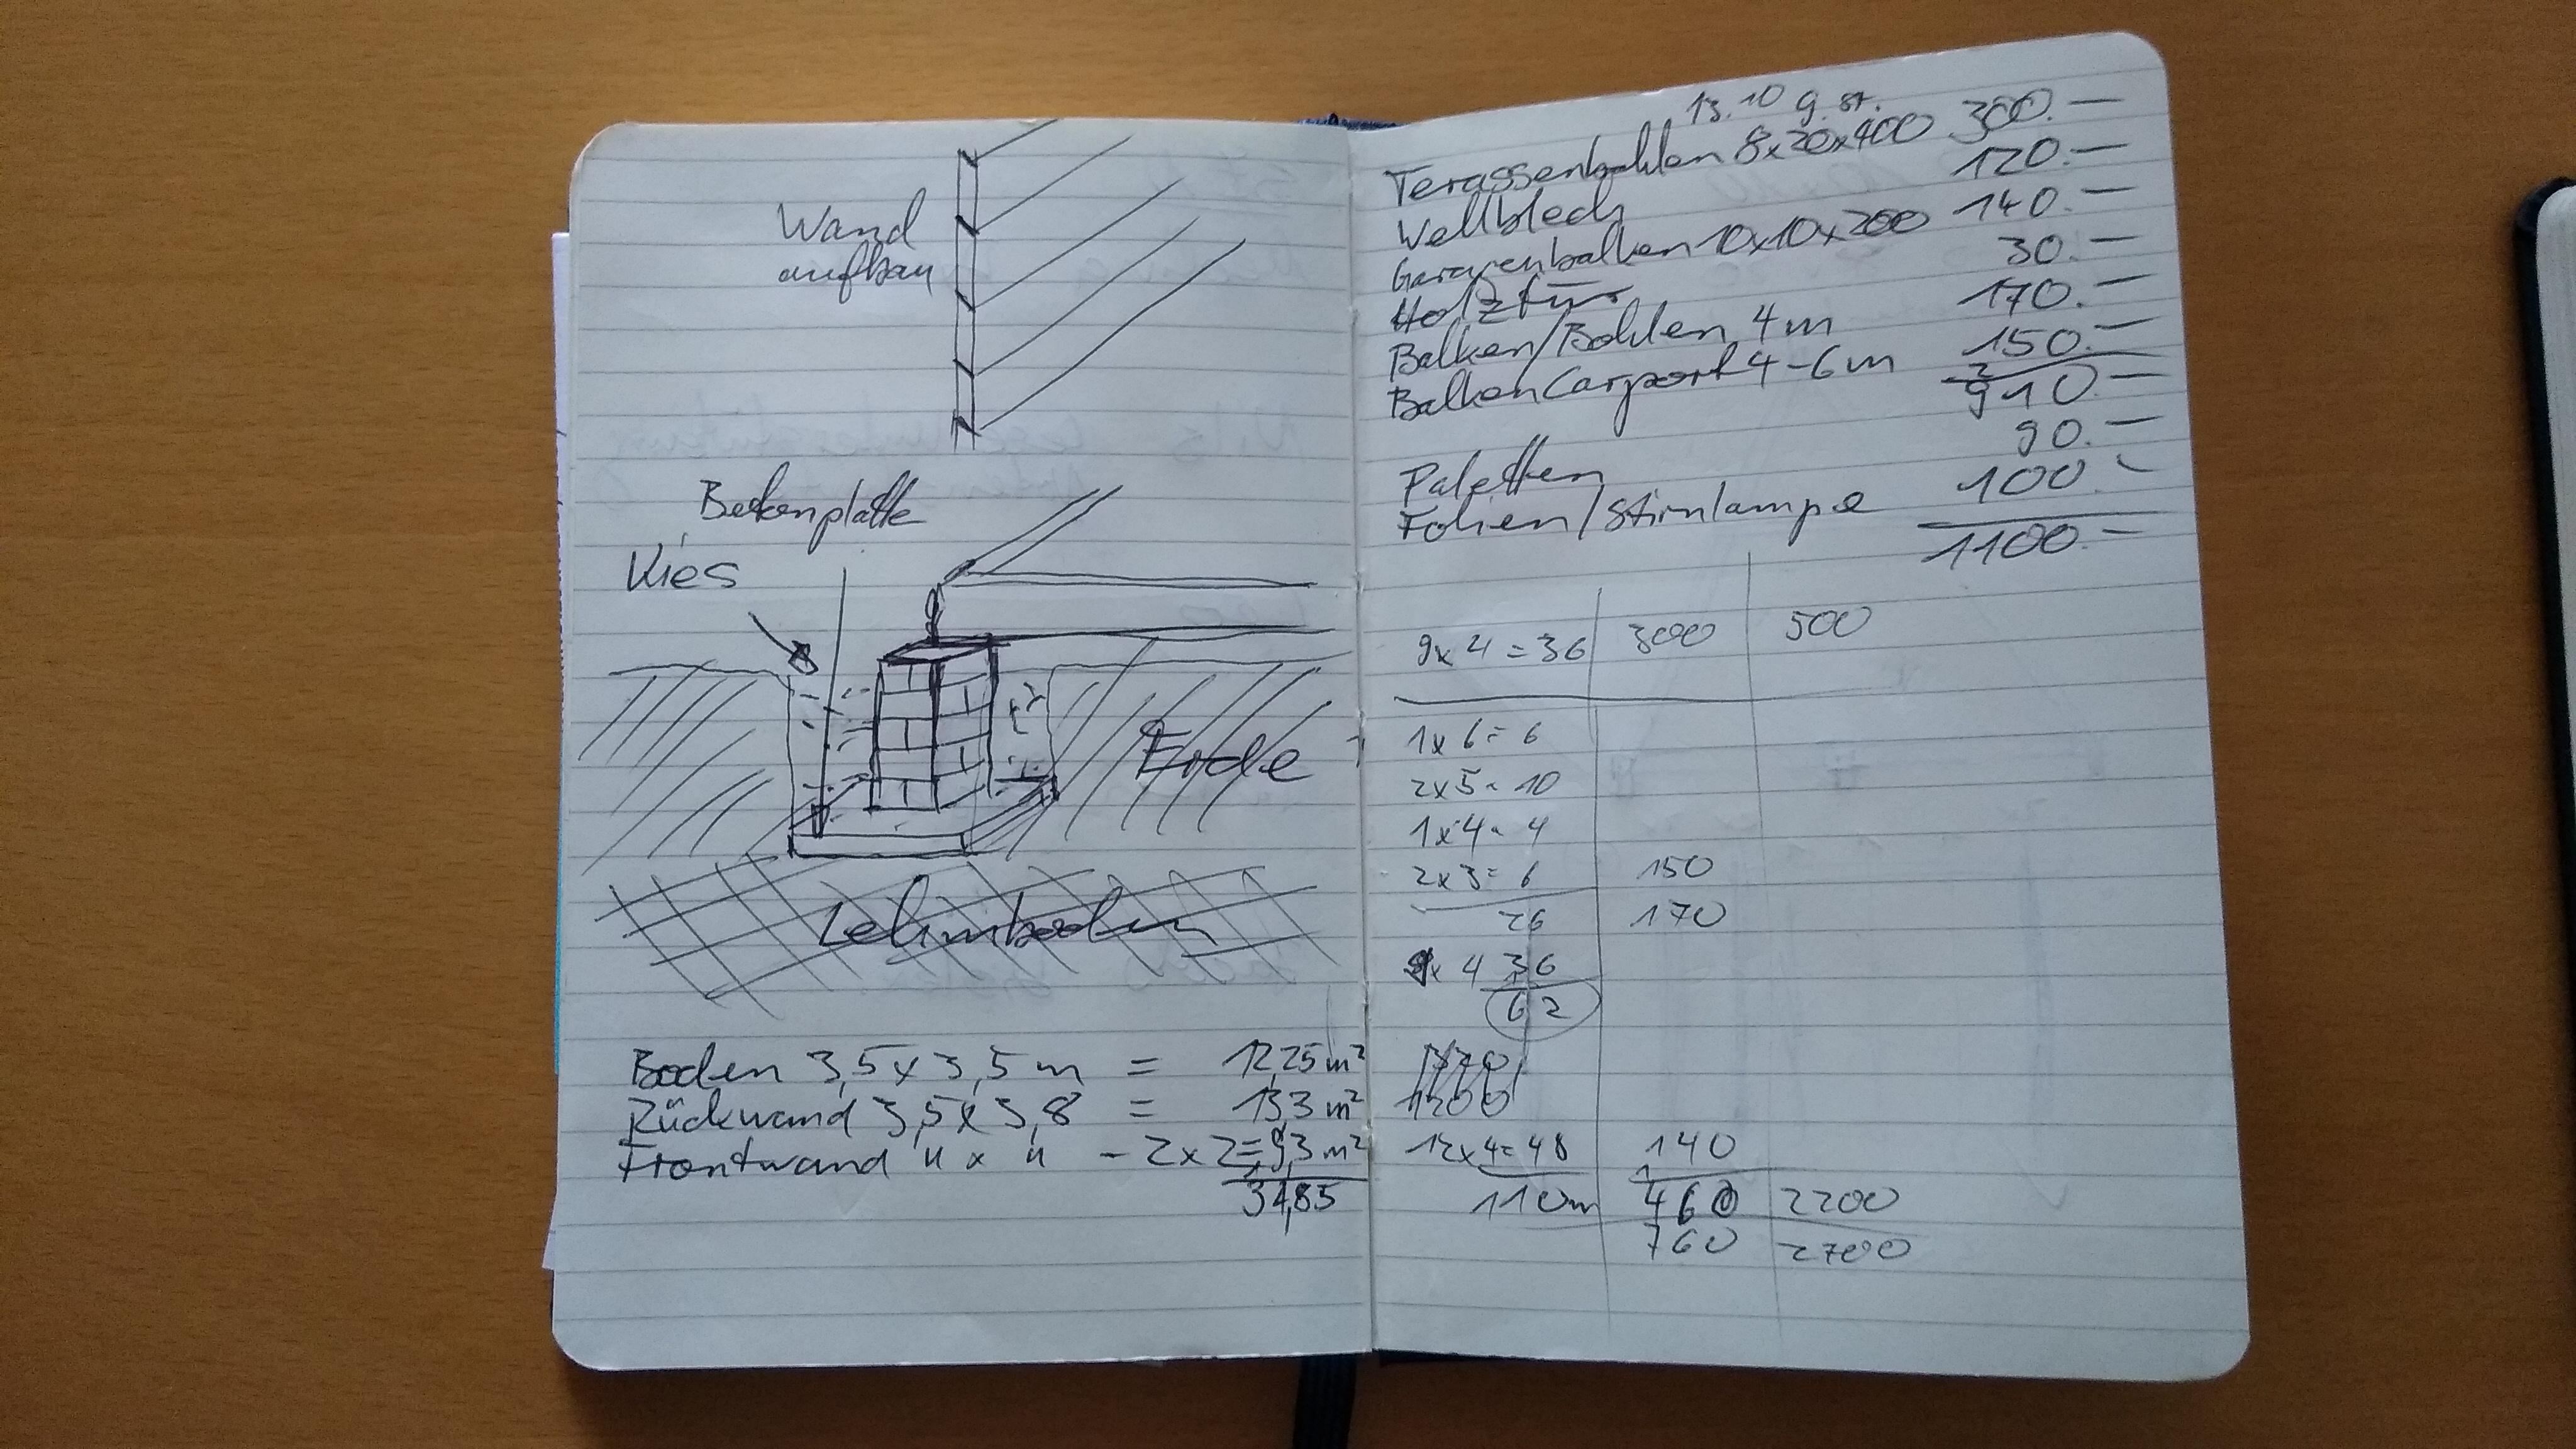 Wand
aufbau
Betonplatte
Kies
Erde
Lehmboden
Boden 3,5 x 3,5 m = 12,25 m²
Rückwand 3,5 x 3,8 = 13,3 m²
Frontwand " x " - 2x2 = 9,3 m²
34,85
13.10 9. st.
Terassenbohlen 8x20x400 300.—
Wellblech 120.—
Garagenbalken 10x10x200 140.—
Holztür 30.—
Balken/Bohlen 4m 170.—
Balken Carport 4-6m 150.—
910.—
Paletten 90.—
Folien/Stirnlampe 100.—
1100.—
9x4=36 300 500
1x6=6
2x5=10
1x4=4
2x3=6 150
26 170
9x4 36
62
1200
12x4=48 140
110m 460 2200
760 2700